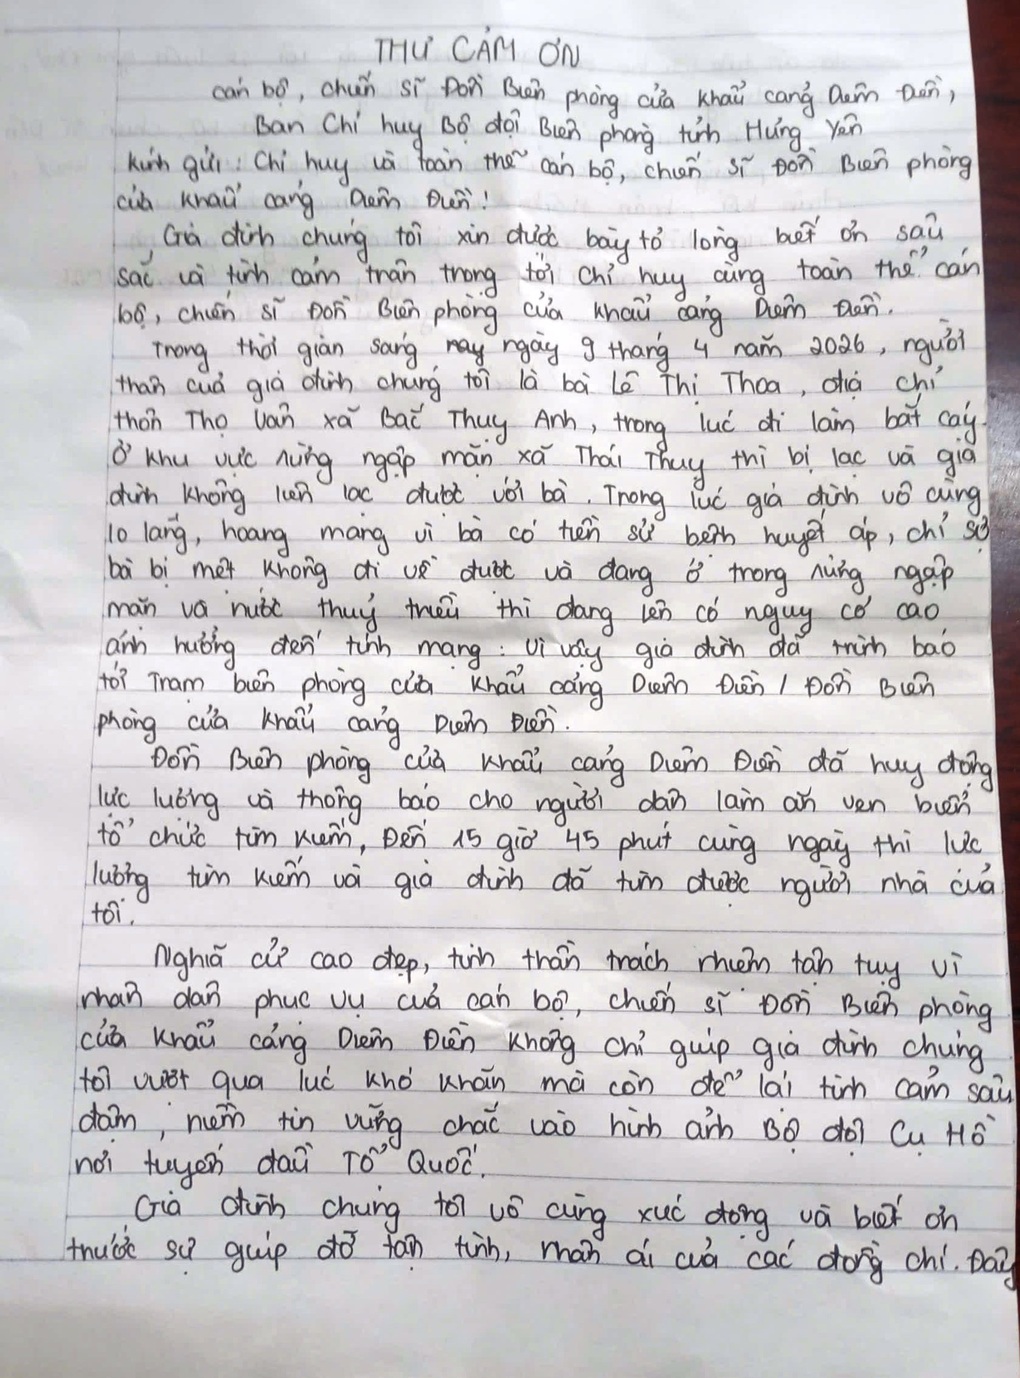 THƯ CẢM ƠN
cán bộ, chiến sĩ Đồn Biên phòng cửa khẩu cảng Diêm Điền,
Ban Chỉ huy Bộ đội Biên phòng tỉnh Hưng Yên
Kính gửi: Chỉ huy và toàn thể cán bộ, chiến sĩ Đồn Biên phòng
cửa khẩu cảng Diêm Điền!
Gia đình chúng tôi xin được bày tỏ lòng biết ơn sâu
sắc và tình cảm trân trọng tới chỉ huy cùng toàn thể cán
bộ, chiến sĩ Đồn Biên phòng cửa khẩu cảng Diêm Điền.
Trong thời gian sáng nay ngày 9 tháng 4 năm 2026, người
thân của gia đình chúng tôi là bà Lê Thị Thoa, địa chỉ
thôn Thọ Vân xã Bắc Thụy Anh, trong lúc đi làm bắt cáy
ở khu vực rừng ngập mặn xã Thái Thụy thì bị lạc và gia
đình không liên lạc được với bà. Trong lúc gia đình vô cùng
lo lắng, hoang mang vì bà có tiền sử bệnh huyết áp, chỉ sợ
bà bị mệt không đi về được và đang ở trong rừng ngập
mặn và nước thuỷ triều thì đang lên có nguy cơ cao
ảnh hưởng đến tính mạng. Vì vậy gia đình đã trình báo
tới Trạm biên phòng cửa khẩu cảng Diêm Điền / Đồn Biên
phòng cửa khẩu cảng Diêm Điền.
Đồn Biên phòng cửa khẩu cảng Diêm Điền đã huy động
lực lượng và thông báo cho người dân làm ăn ven biển
tổ chức tìm kiếm, Đến 15 giờ 45 phút cùng ngày thì lực
lượng tìm kiếm và gia đình đã tìm được người nhà của
tôi.
Nghĩa cử cao đẹp, tinh thần trách nhiệm tận tụy vì
nhân dân phục vụ của cán bộ, chiến sĩ Đồn Biên phòng
cửa khẩu cảng Diêm Điền không chỉ giúp gia đình chúng
tôi vượt qua lúc khó khăn mà còn để lại tình cảm sâu
đậm, niềm tin vững chắc vào hình ảnh Bộ đội Cụ Hồ
nơi tuyến đầu Tổ Quốc.
Gia đình chúng tôi vô cùng xúc động và biết ơn
trước sự giúp đỡ tận tình, nhân ái của các đồng chí. Đây